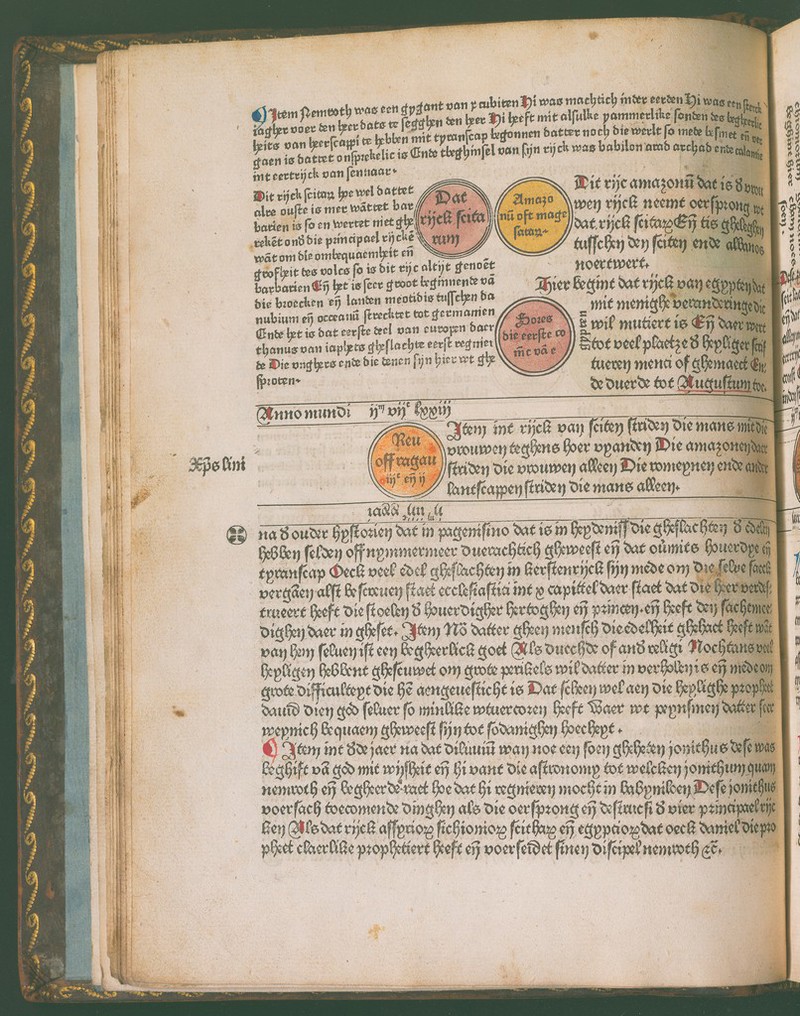 Item Nemroth was een gygant van x cubiten Hi was machtich inder eerden Hi was een sterck
iagher voer den heer dats te segghen den heer Hi heeft mit alsulke yammerlike sonden des begheerlic
heits van heerscappi te hebben mit tyranscap begonnen datter noch die werlt so mede besmet en̄
gaen is dattet onsprekelic is Ende tbeghinsel van sijn rijck was babilon arad archad ende
int eertrijck van sennaar.
Dit rijck scitaꝝ hoe wel dattet
alre oufte is mer wāttet bar
barien is so en wertet niet ghe
rekēt onð die principael rijckē
wāt om die ombequaemheit en̄
groſheit des volcs so is dit rijc altijt genoēt
barbarien En̄ het is seer groot beginnende vā
die broecken en̄ landen meotidis tusschen da
nubium en̄ occeanū streckett tot germanien
Ende het is dat eerste deel van europen daer
thanus van iaphets gheslachte eerst regnier
de Die onghers ende die denen sijn hier wt ghe
sproten.
Dat
rijck scita
rum
Amazo
nū oft mage
sataꝝ.
Dit rijc amazonū dat is ð vrou
wen rijck neemt oersprong wt
dat rijck scitaꝝ En̄ tis gheleghen
tusschen den sciten ende albanos
noertwert.
Hier begint dat rijck van egypten dat
mit menighe veranderinge die
wil mutiert is En̄ daer wert
tot veel plaetze ð heyliger scrif
tueren menci of ghemaect En̄
de duerde tot Augustum toe.
Sores
die eerste co
nīc vā e
Anno mundi ijᵐ vijᶜ lxxiij
Xp̄s lini
Reu
off ragau
iijᶜ en̄ ij
Item int rijck van sciten striden die mans mit die
vrouwen teghens hoer vyanden Die amazonen daer
striden die vrouwen alleen Die romeynen ende ander
lantscappen striden die mans alleen.
na ð ouder hystorien dat in pagenismo dat is in heydeniss die gheslachten ð edelen
hebben selden off nymmermeer duerachtich gheweest en̄ dat oūmits houerdye en̄
tyranscap Oeck veel edel gheslachten in kerstenrijck sijn mede om die selue saeck
vergāen alst bescreuen staet ecclesiastici int x capittel daer staet dat die heer verdes
trueert heeft die stoelen ð houerdigher hertoghen en̄ princen. en̄ heeft den sachtmoe
dighen daer in gheset. Item Nō datter gheen mensch die edelheit ghehact heeft wāt
van hem seluen ist een begheerlick goet Als duechde of anð religi Nochtans veel
heyligen hebbent ghescuwet om grote perikels wil datter in verholen is en̄ mede om
grote difficulteyt die hē aengeuesticht is Dat scheen wel aen die heylighe propheet
dauid dien god seluer so minlike wtuercoren heeft Waer wt peynsmen datter seer
weynich bequaem gheweest sijn tot sodanighen hoecheyt.
Item int ðde jaer na dat diluuiū wan noe een soen gheheten jonithus dese was
beghift vā god mit wijsheit en̄ hi vant die astronomy tot welcken jonithum quam
nemroth en̄ begheerde raet hoe dat hi regnieren mocht in babynilcen Dese jonithus
voersach toecomende dinghen als die oersprong en̄ destructi ð vier principael rijc
ken Als dat rijck assyrioꝝ sichionioꝝ scithaꝝ en̄ egypcioꝝ dat oeck daniel die pro
pheet claerlike prophetiert heeft en̄ voerseidet sinen discipel nemroth ⁊c̄.